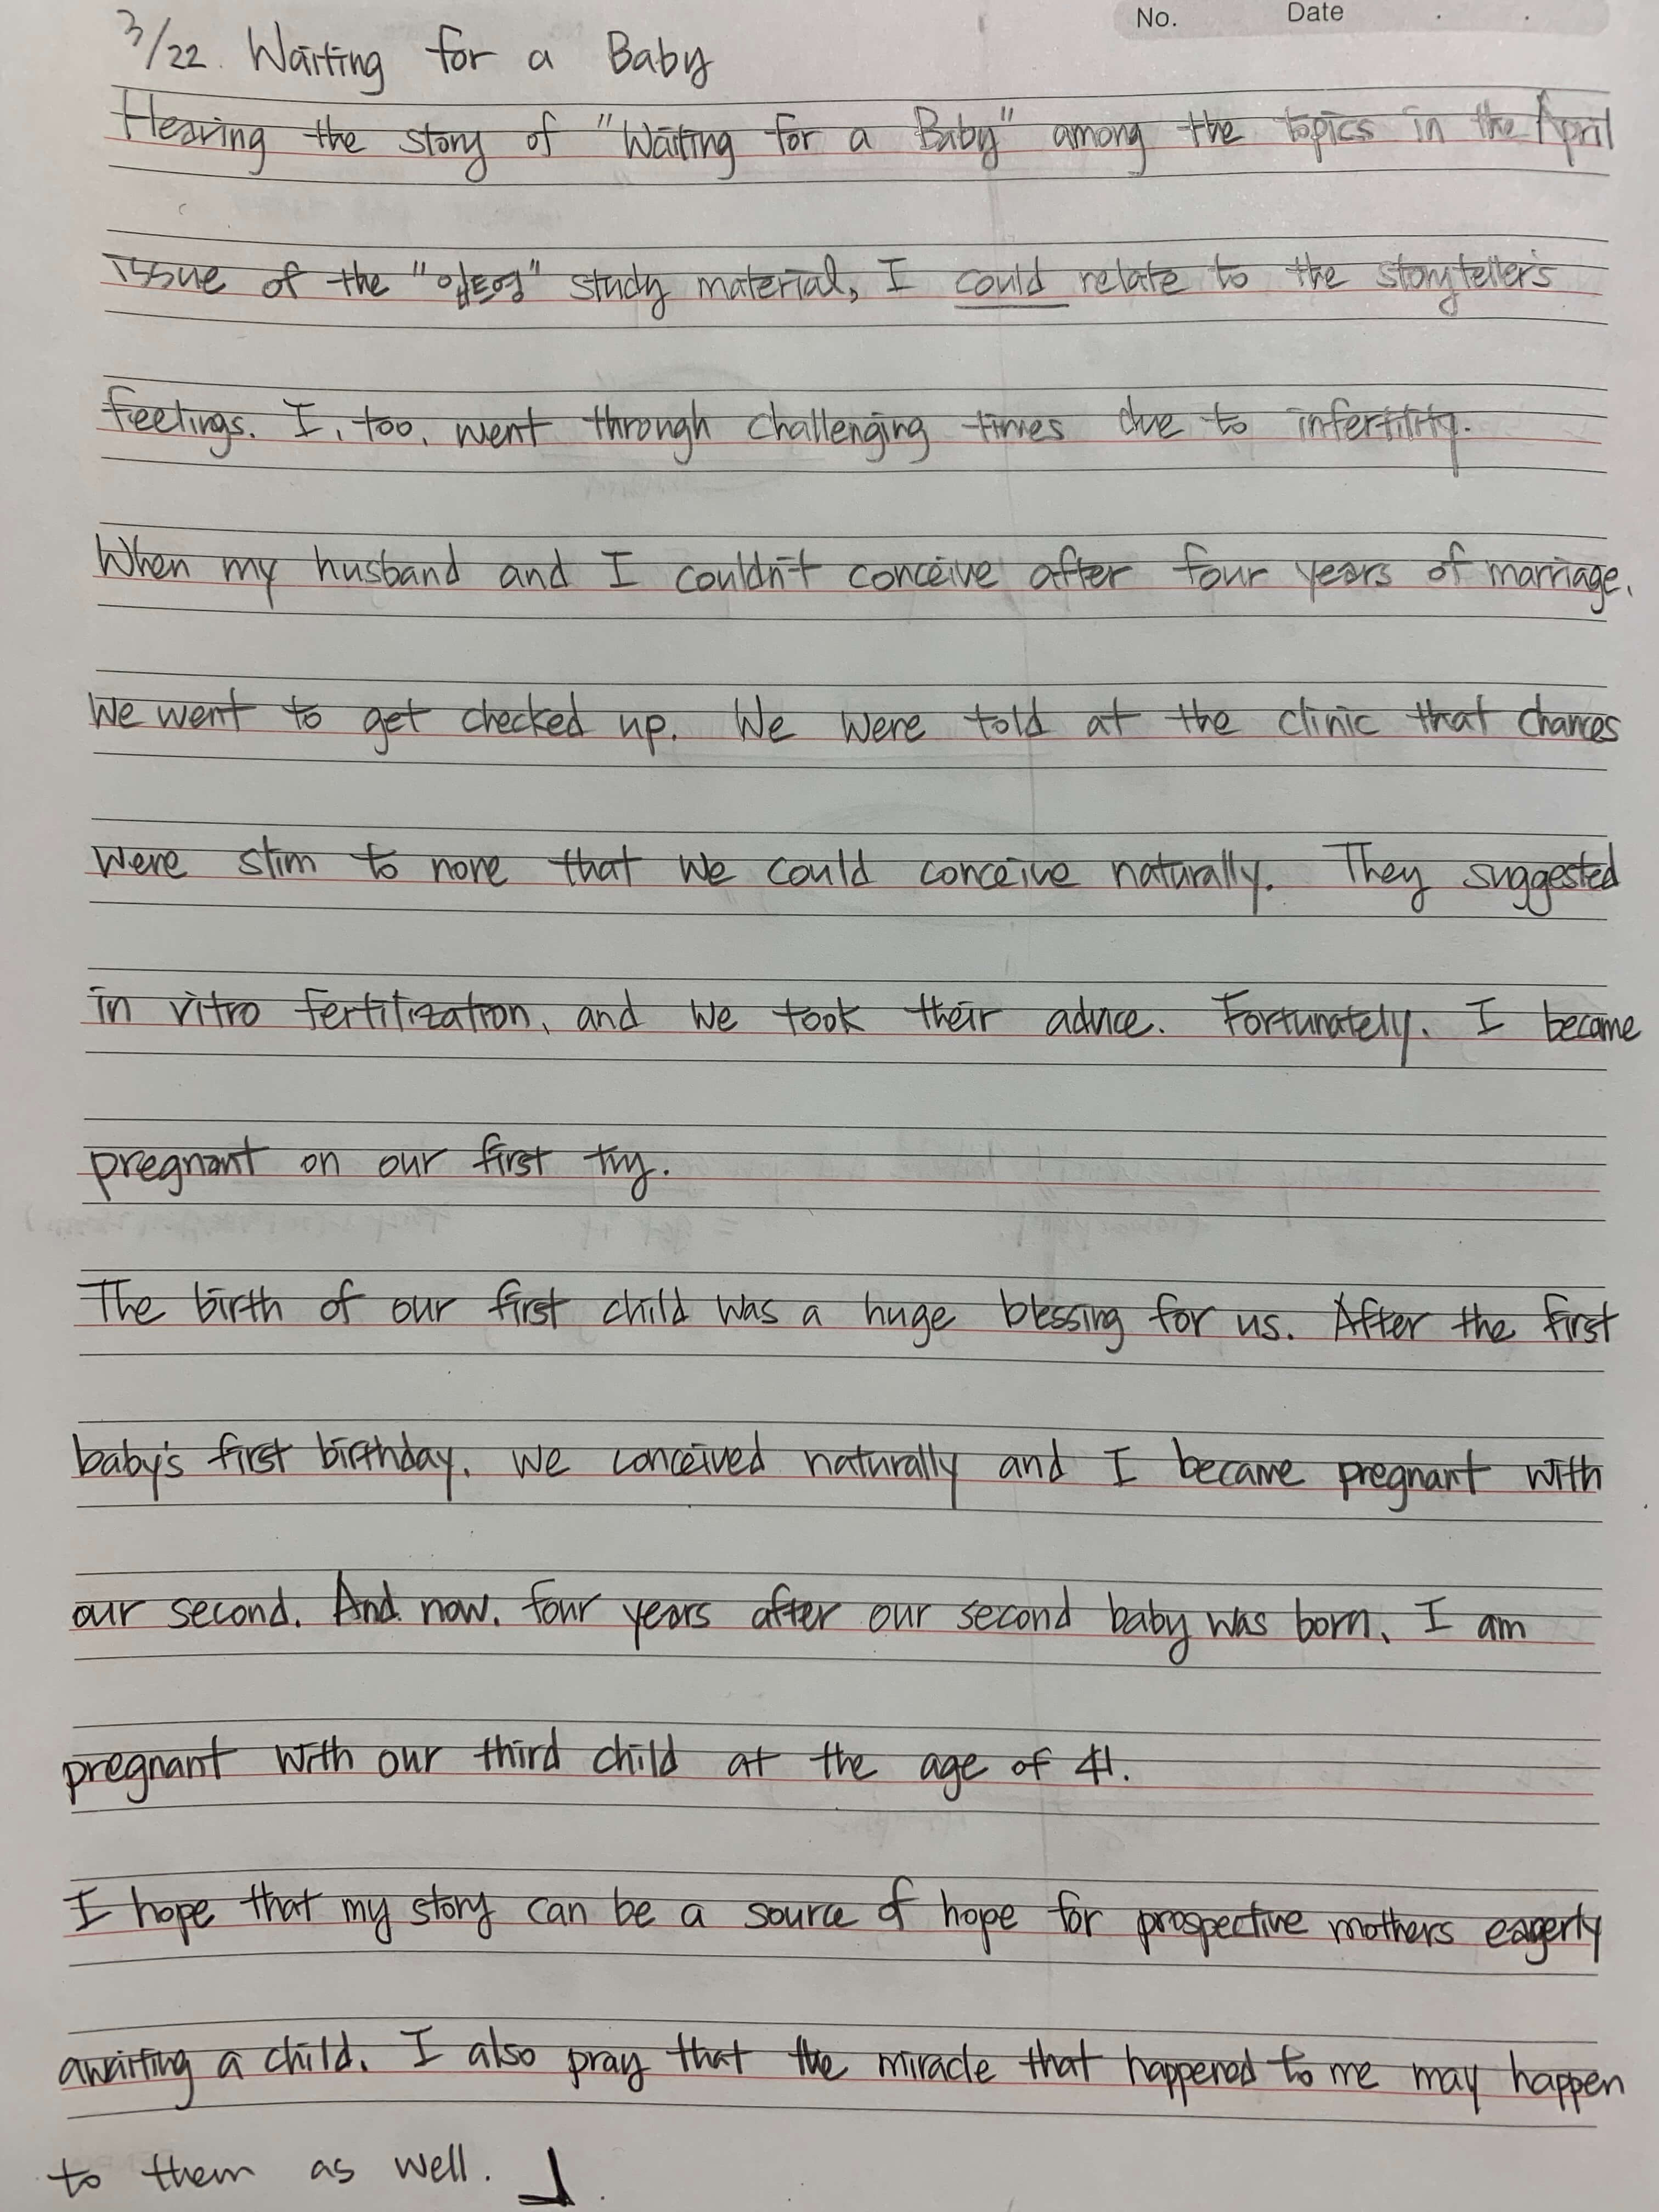 No. Date
3/22. Waiting for a Baby
Hearing the story of "Waiting for a Baby" among the topics in the April
issue of the "입트영" study material, I could relate to the storyteller's
feelings. I, too, went through challenging times due to infertility.
When my husband and I couldn't conceive after four years of marriage,
We went to get checked up. We were told at the clinic that chances
were slim to none that we could conceive naturally. They suggested
in vitro fertilization, and we took their advice. Fortunately, I became
pregnant on our first try.
The birth of our first child was a huge blessing for us. After the first
baby's first birthday, we conceived naturally and I became pregnant with
our second. And now, four years after our second baby was born, I am
pregnant with our third child at the age of 41.
I hope that my story can be a source of hope for prospective mothers eagerly
awaiting a child. I also pray that the miracle that happened to me may happen
to them as well.